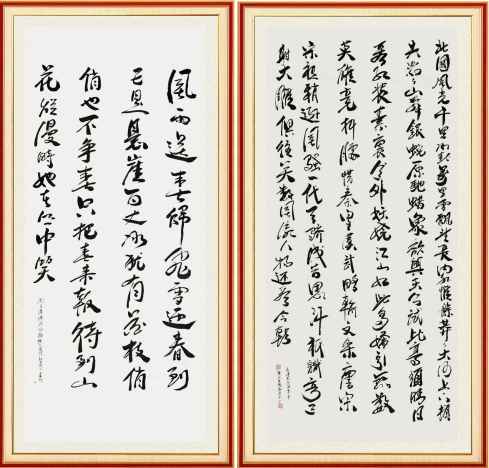 風雨送春歸飛雪迎春到
已是懸崖百丈冰犹有花枝俏
俏也不争春只把春来報待到山
花爛漫時她在丛中笑
北國風光千里冰封萬里雪飄望長城内外惟餘莽莽大河上下頓
失滔滔山舞銀蛇原馳蠟象欲與天公試比高須晴日
看紅装素裹分外妖嬈江山如此多嬌引無數
英雄競折腰惜秦皇漢武略輸文采唐宗
宋祖稍遜風騷一代天驕成吉思汗只識彎弓
射大雕俱往矣數風流人物還看今朝